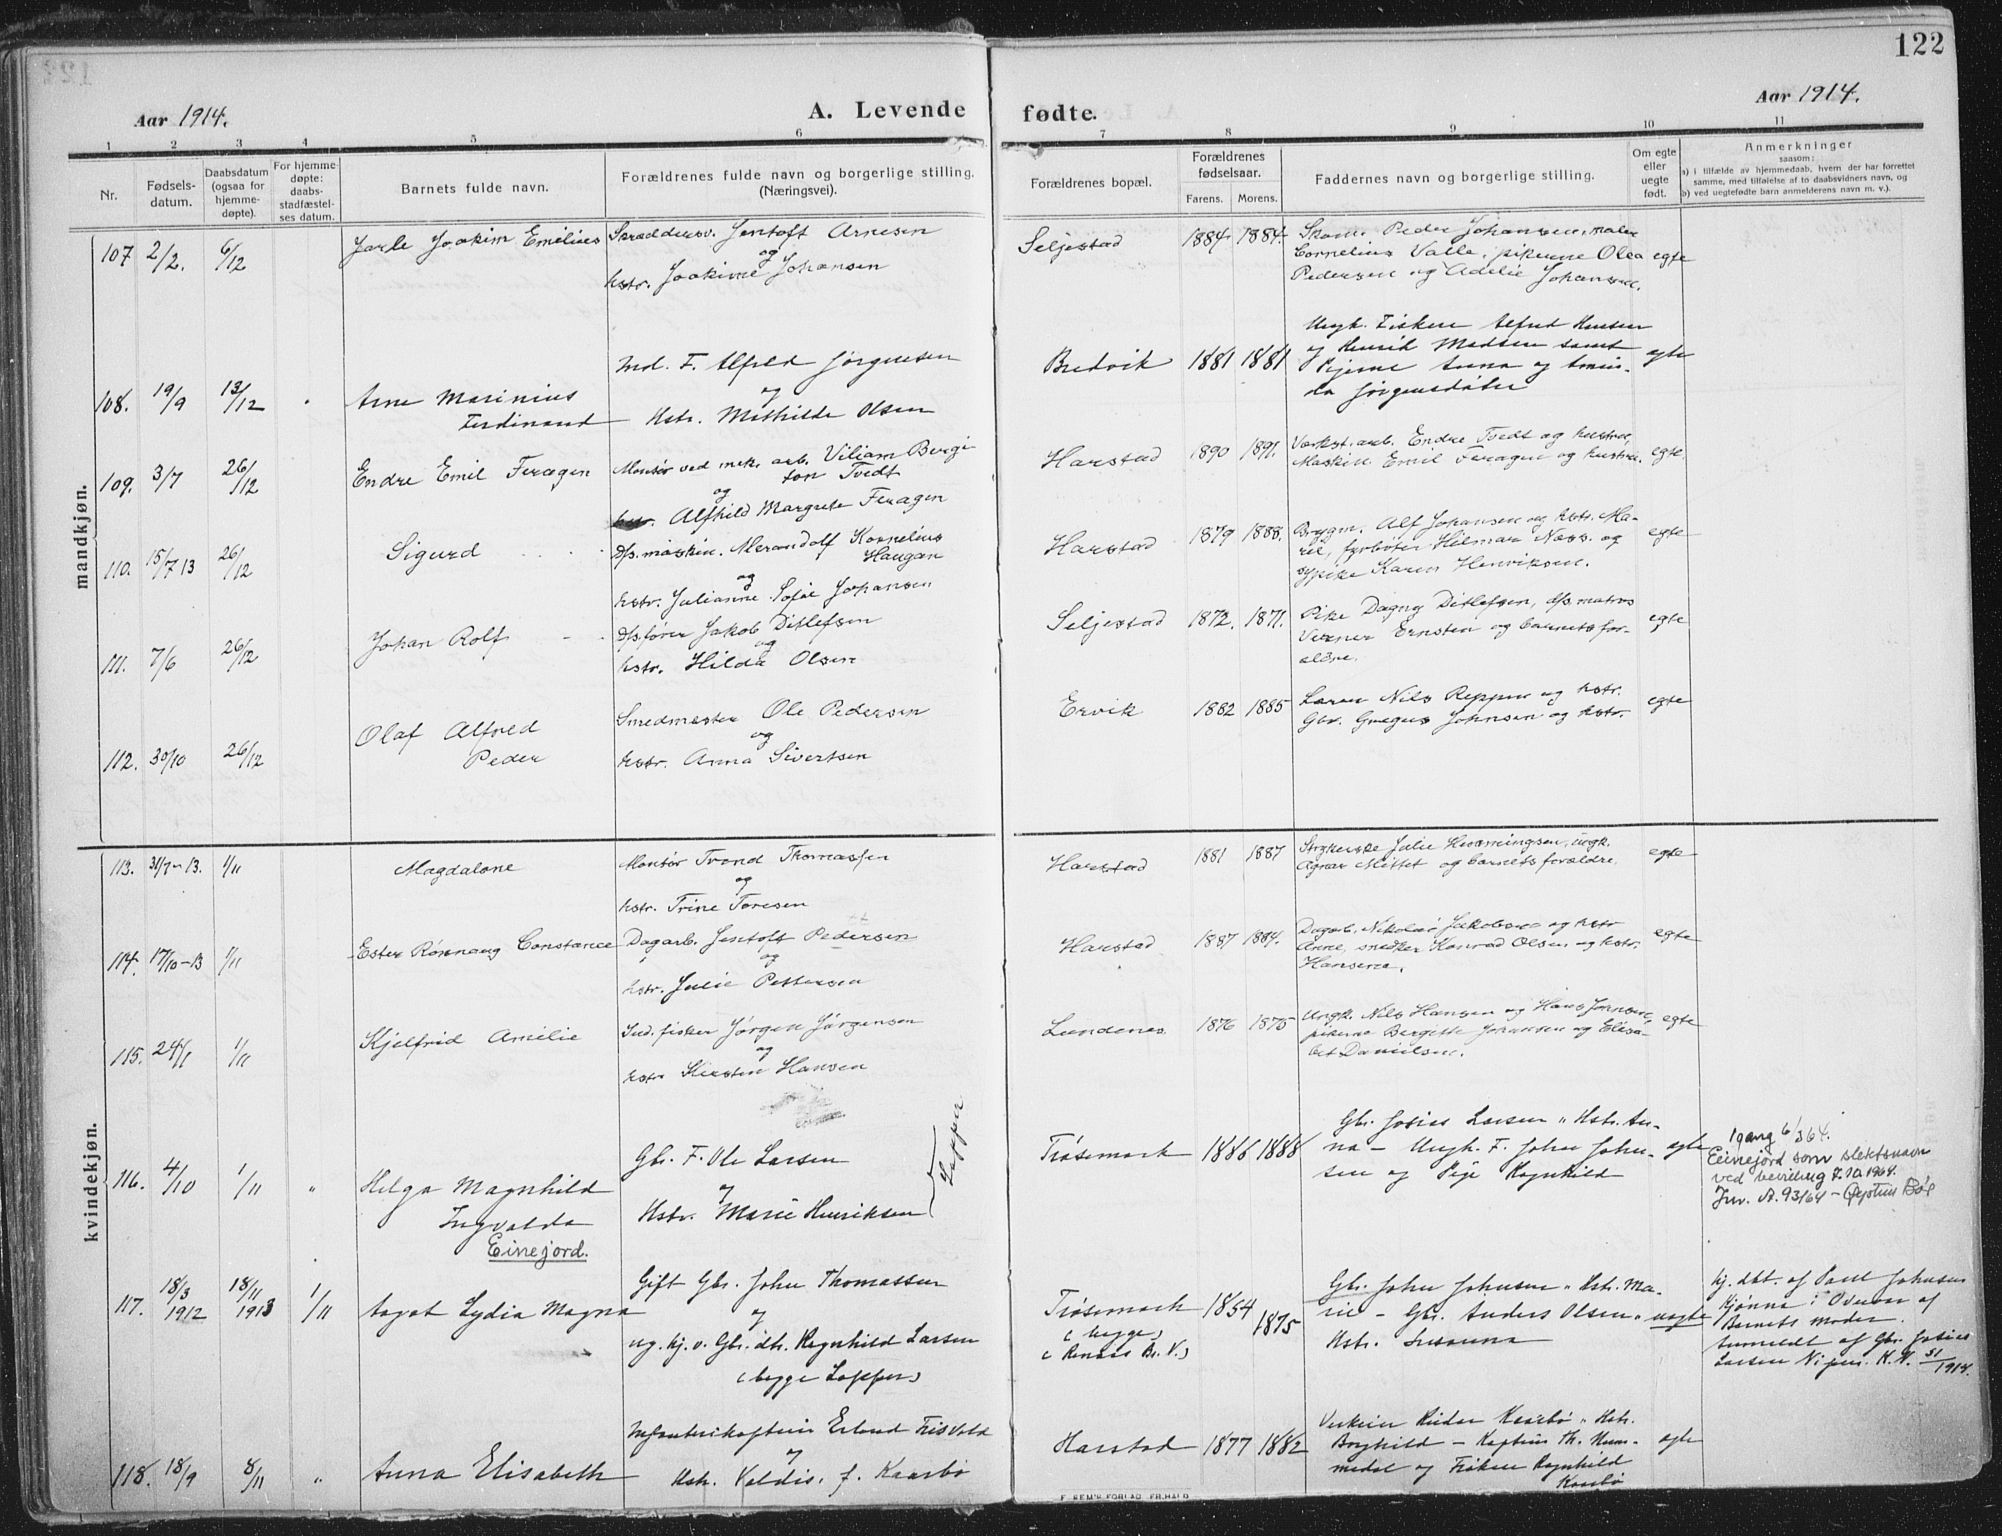 122
Aar 1914.
A. Levende
fødte.
Aar 1914.
1 2 3 4 5 6 7 8 9 10 11
Nr.
Fødsels-
datum.
Daabsdatum
(ogsaa for
hjemme-
døpte).
For hjemme-
døpte:
daabs-
stadfæstel-
ses datum.
Barnets fulde navn.
Forældrenes fulde navn og borgerlige stilling.
(Næringsvei).
Forældrenes bopæl.
Forældrenes
fødselsaar.
Farens. Morens.
Faddernes navn og borgerlige stilling.
Om egte
eller
uegte
født.
Anmerkninger
saasom:
a) i tilfælde av hjemmedaab, hvem der har forrettet
samme, med tilføielse af to daabsvidners navn, og
b) ved uegtefødte barn anmelderens navn m. v.).
mandkjøn.
107 2/2. 6/12 Jarle Joakim Emelius
Skræddersv. Jentoft Arnesen
og
hstr. Joakime Johansen
Seljestad 1884 1884.
Skom. Peder Johansen, maler
Cornelius Valle, pikerne Olea
Pedersen og Adelie Johansen.
egte
108. 19/9 13/12 Arne Marinius
Ferdinand
Ind. F. Alfred Jørgensen
og
Hstr. Mathilde Olsen
Bredvik 1881 1881
Ungk. Fiskere Alfred Hansen
og Henrik Madsen samt
Pigerne Anna og Amin-
da Jørgensdåter
egte
109. 3/7 26/12 Endre Emil Feragen
Montør ved mek. arb. Viliam Bergi-
ton Tvedt
og
hstr. Alfhild Margrete Feragen
Harstad 1890 1891.
Værkst. arb. Endre Tvedt og hustru,
Maskin. Emil Feragen og hustru.
egte.
110. 15/7 13 26/12 Sigurd
D/s. maskin. Merandolf Kornelius
Haugan
og
hstr. Julianne Sofie Johansen
Harstad 1879 1888.
Brygm. Alf Johansen og hstr. Ma-
rie, fyrbøter Hilmar Næss og
sypike Karen Henriksen.
egte
111. 7/6 26/12 Johan Rolf
D/s fører Jakob Ditlefsen
og
hstr. Hilda Olsen
Seljestad 1872. 1871.
Pike Dagny Ditlefsen, d/s. matros
Verner Ernsten og barnets for-
ældre.
egte
112. 30/10 26/12 Olaf Alfred
Peder
Smedmester Ole Pedersen
og
hstr. Anna Sivertsen
Ervik 1882 1885
Lærer Nils Reppen og hstr.
Gbr. Gregus Johnsen og hstr.
egte
kvindekjøn.
113. 31/7-13. 1/11 Magdalone
Montør Trond Thomassen
og
hstr. Trine Toresen
Harstad 1881 1887
Strykerske Julie Hemmingsen, ungk.
Agnar Mittet og barnets forældre.
egte
114. 17/10-13 1/11 Ester Rønnaug Constance
Dagarb. Jentoft Pedersen
og
hstr. Julie Pettersen
Harstad 1887 1884.
Dagarb. Nikolai Jakobsen og hstr
Anne, snedker Konrad Olsen og hstr.
Hansine.
egte
115. 24/1 1/11 Kjelfrid Amelie
Ind. fisker Jørgen Jørgensen
og
hstr Kirsten Hansen
Lundenes 1876 1875
Ungk. Nils Hansen og Hans Johnsen,
pikerne Bergitte Johansen og Elisa-
bet Danielsen.
egte
116. 4/10 1/11 " Helga Magnhild
Ingvalda
Einejord.
Gbr. F. Ole Larsen
og
Hstr. Marie Henriksen
Lapper
Trøsemark 1886 1888
Gbr. Josias Larsen " Hstr. An-
na – Ungk. F. John John-
sen og Pige Ragnhild
egte
1 gang 6/3 64.
Einejord som slektsnavn
ved bevilling 7.10.1964.
Jnr. A. 93/64 –
117. 18/3 1912 18/11 1913 1/11 Aagot Lydia Magna
Gift Gbr. John Thomassen
og
ug. kj. v. Gbr. dtr. Ragnhild Larsen
(begge Lapper)
Trøsemark
(begge)
1854 1875
Gbr. John Johnsen " Hstr. Ma-
rie – Gbr. Anders Olsen "
Hstr. Susanna
uegte
hj. dbt. af Paul Johnsen
Kjønna i Overvær af
Barnets moder.
Anmeldt af Gbr. Josias
Larsen
118. 18/9 8/11 " Anna Elisabeth
Infanterikaptein Erland Frisvold
og
Hstr. Valdis, f. Kaarbø
Harstad 1877 1882
Kaarbø " Hstr.
Borghild – Kaptein Th. Hum-
medal og Frøken Ragnhild
Kaarbø
egte